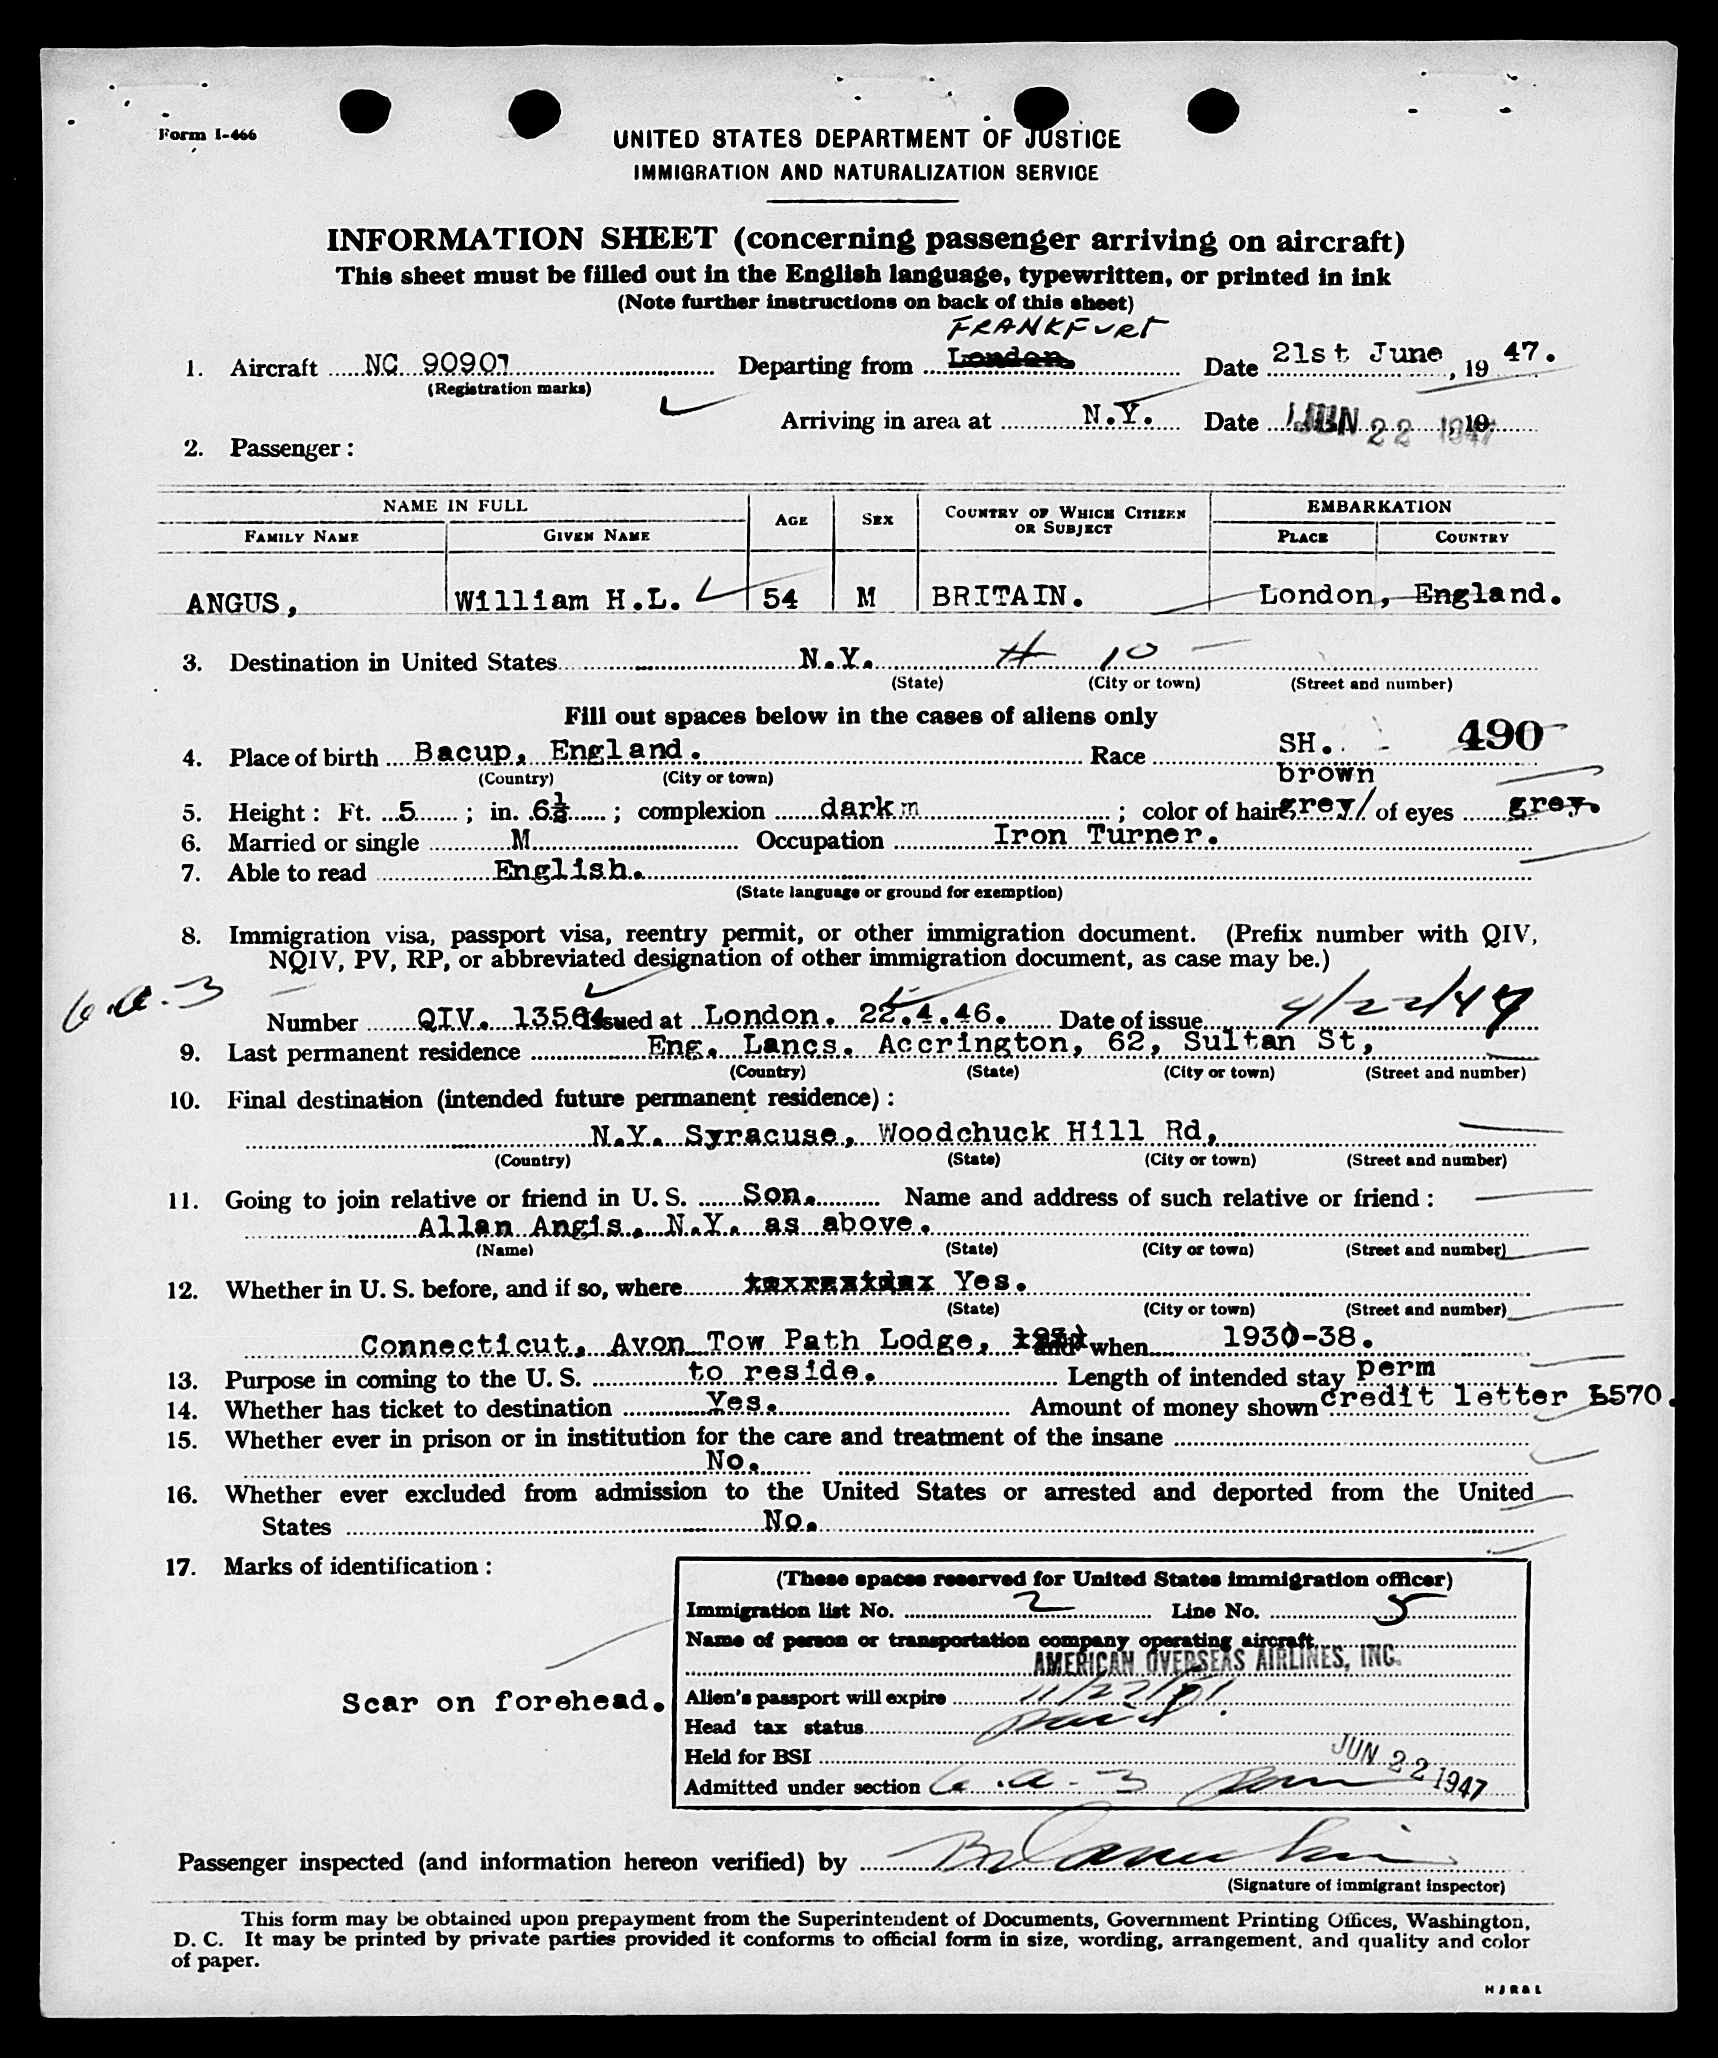 Form I-466
UNITED STATES DEPARTMENT OF JUSTICE
IMMIGRATION AND NATURALIZATION SERVICE
INFORMATION SHEET (concerning passenger arriving on aircraft)
This sheet must be filled out in the English language, typewritten, or printed in ink
(Note further instructions on back of this sheet)
FRANKFURT
1. Aircraft NC 90901 Departing from London. Date 21st June, 19 47.
(Registration marks)
Arriving in area at N.Y. Date JUN 22 1947, 19
2. Passenger:
NAME IN FULL AGE SEX COUNTRY OF WHICH CITIZEN OR SUBJECT EMBARKATION
FAMILY NAME GIVEN NAME PLACE COUNTRY
ANGUS, William H.L. 54 M BRITAIN. London, England.
3. Destination in United States N.Y. # 10
(State) (City or town) (Street and number)
Fill out spaces below in the cases of aliens only
4. Place of birth Bacup, England. Race SH. 490
(Country) (City or town) brown
5. Height: Ft. 5; in. 6½; complexion dark; color of hair grey/ of eyes grey.
6. Married or single M Occupation Iron Turner.
7. Able to read English.
(State language or ground for exemption)
8. Immigration visa, passport visa, reentry permit, or other immigration document. (Prefix number with QIV,
NQIV, PV, RP, or abbreviated designation of other immigration document, as case may be.)
6.a.-3
Number QIV. 13564 Issued at London. 22.4.46. Date of issue 4/22/47
9. Last permanent residence Eng. Lancs. Accrington, 62, Sultan St,
(Country) (State) (City or town) (Street and number)
10. Final destination (intended future permanent residence):
N.Y. Syracuse, Woodchuck Hill Rd,
(Country) (State) (City or town) (Street and number)
11. Going to join relative or friend in U. S. Son. Name and address of such relative or friend:
Allan Angis, N.Y. as above.
(Name) (State) (City or town) (Street and number)
12. Whether in U. S. before, and if so, where Yes.
(State) (City or town) (Street and number)
Connecticut, Avon Tow Path Lodge, and when 1930-38.
13. Purpose in coming to the U. S. to reside. Length of intended stay perm
14. Whether has ticket to destination Yes. Amount of money shown credit letter £570.
15. Whether ever in prison or in institution for the care and treatment of the insane
No.
16. Whether ever excluded from admission to the United States or arrested and deported from the United
States No.
17. Marks of identification:
Scar on forehead.
(These spaces reserved for United States immigration officer)
Immigration list No. 2 Line No. 5
Name of person or transportation company operating aircraft
AMERICAN OVERSEAS AIRLINES, INC.
Alien's passport will expire 11/22/51
Head tax status Paid
Held for BSI
JUN 22 1947
Admitted under section 6.a.-3 Perm
Passenger inspected (and information hereon verified) by
(Signature of immigrant inspector)
This form may be obtained upon prepayment from the Superintendent of Documents, Government Printing Offices, Washington,
D. C. It may be printed by private parties provided it conforms to official form in size, wording, arrangement, and quality and color
of paper.
HJR&L